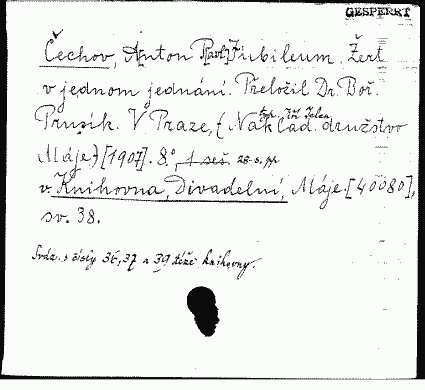 GESPERRT
Čechov, Anton [Pavl.] Jubileum. Žert
v jednom jednání. Přeložil Dr. Boř.
Prusík. V Praze, (Naklad. družstvo
typ. Jiří Jelen
Máje) [1907]. 8°, 1 seš. 28 s. pp
v Knihovna, Divadelní, Máje. [40080],
sv. 38.
Sváz. s čísly 36, 37 a 39 téže knihovny.